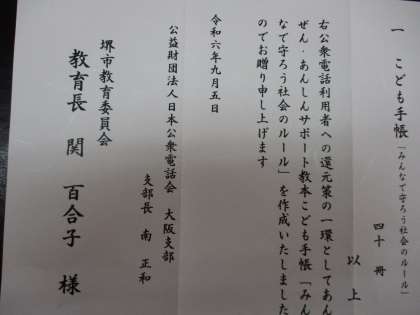 一 こども手帳「みんなで守ろう社会のルール」
四十 冊
以 上
右公衆電話利用者への還元策の一環としてあん
ぜん・あんしんサポート教本こども手帳「みん
なで守ろう社会のルール」を作成いたしました
のでお贈り申し上げます
令和六年九月五日
公益財団法人日本公衆電話会 大阪支部
支部長 南 正和
堺市教育委員会
教育長 関 百合子 様